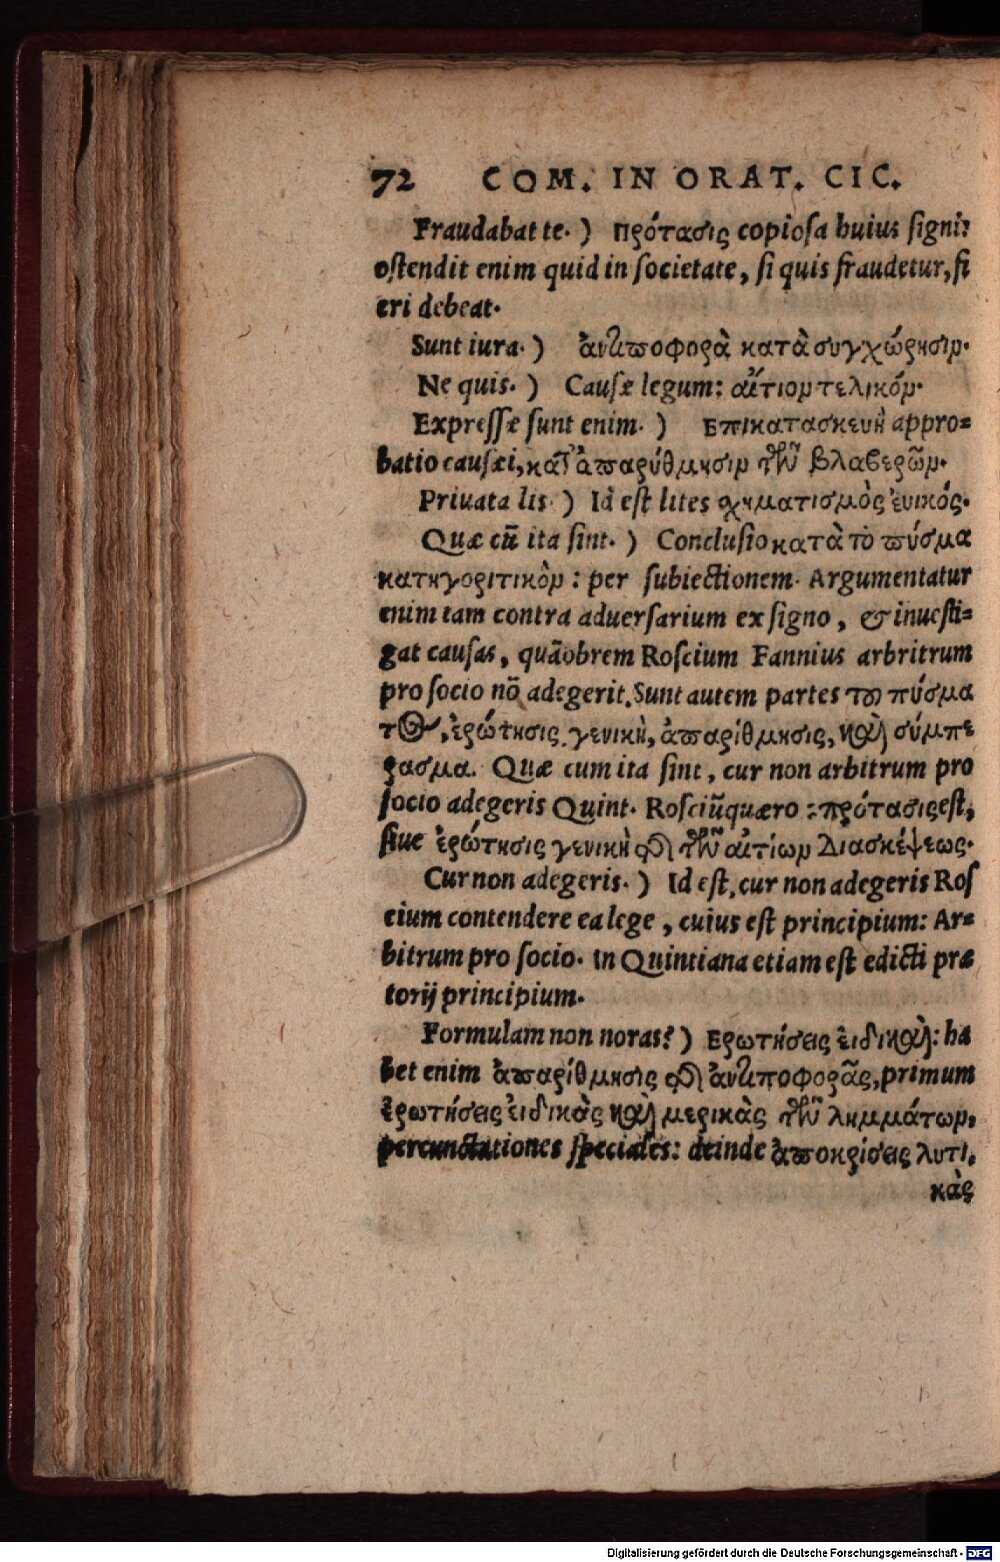 72 COM. IN ORAT. CIC.
Fraudabat te.) πρότασις copiosa huius signi:
ostendit enim quid in societate, si quis fraudetur, fi
eri debeat.
Sunt iura.) ἀντιποφορὰ κατὰ συγχώρησιν.
Ne quis.) Causæ legum: αἴτιον τελικόν.
Expressæ sunt enim.) Επικατασκευὴ appro=
batio causæi, κατ' ἀπαρίθμησιν τῶν βλαβερῶν.
Priuata lis.) Id est lites σχηματισμὸς ἑνικός.
Quæ cũ ita sint.) Conclusio κατὰ τὸ πύσμα
κατηγοριτικὸν: per subiectionem. Argumentatur
enim tam contra aduersarium ex signo, & inuesti=
gat causas, quãobrem Roscium Fannius arbritrum
pro socio nõ adegerit. Sunt autem partes τοῦ πύσμα
τος, ἐρώτησις γενικὴ, ἀπαρίθμησις, καὶ σύμπε
ρασμα. Quæ cum ita sint, cur non arbitrum pro
socio adegeris Quint. Rosciũ quæro: πρότασις est,
siue ἐρώτησις γενικὴ περὶ τῶν αἰτίων διασκέψεως.
Cur non adegeris.) Id est, cur non adegeris Ros
cium contendere ea lege, cuius est principium: Ar=
bitrum pro socio. In Quintiana etiam est edicti præ
torij principium.
Formulam non noras?) Ερωτήσεις εἰδικαὶ: ha
bet enim ἀπαρίθμησις περὶ ἀντιποφορᾶς, primum
ἐρωτήσεις εἰδικὰς καὶ μερικὰς τῶν λημμάτων,
percunctationes speciales: deinde ἀποκρίσεις λυτι,
κὰς
Digitalisierung gefördert durch die Deutsche Forschungsgemeinschaft - DFG